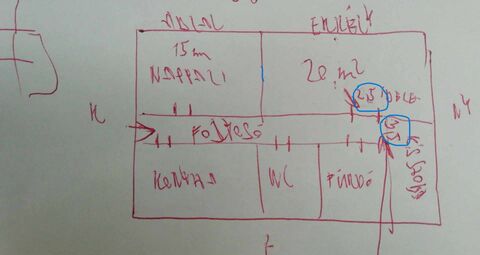 ABLAK ERKÉLY
15 m
NAPPALI
20 m²
2,5
K NY
FOLYOSÓ
3,5
KIS SZOBA
KONYHA WC FÜRDŐ